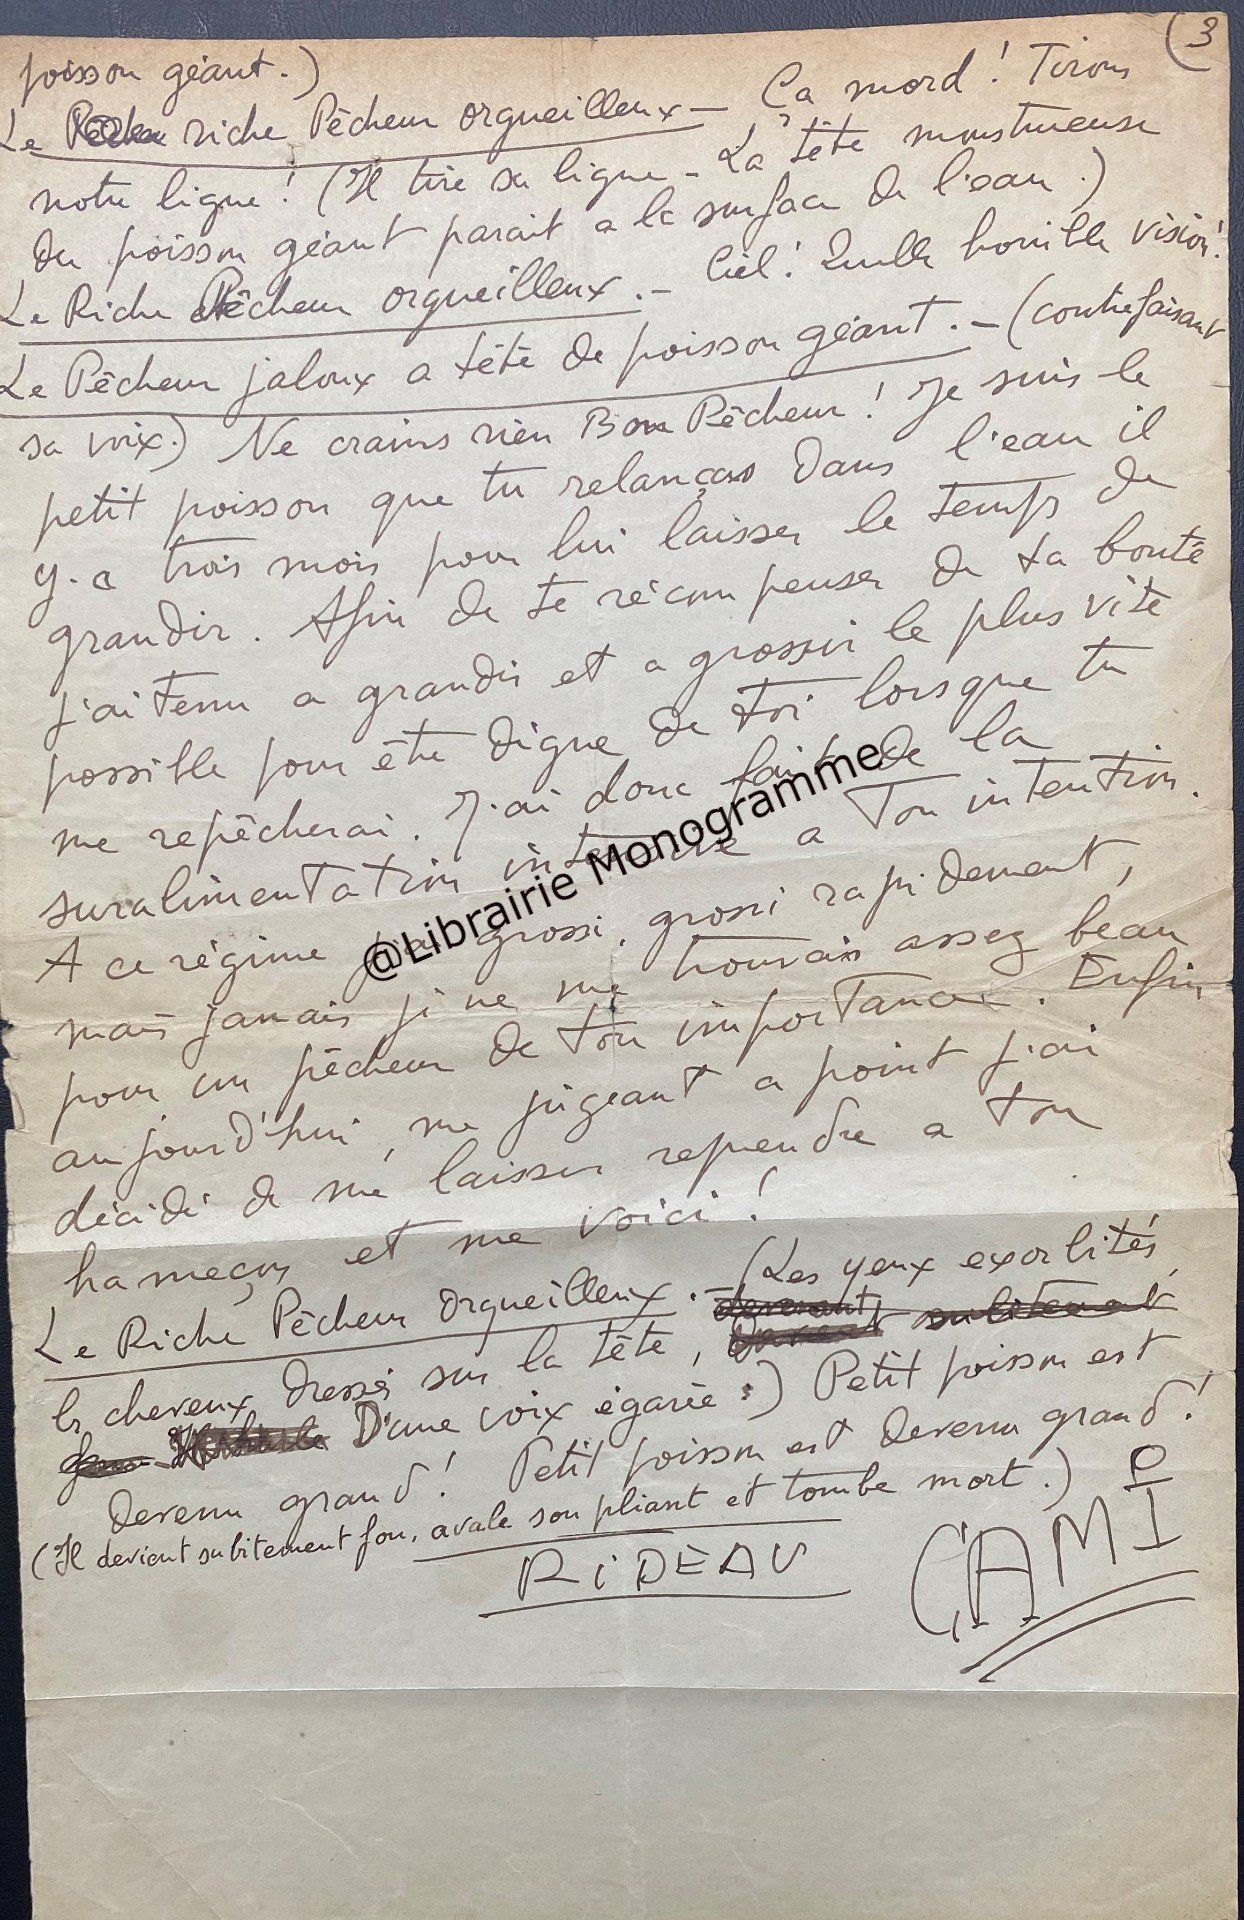 (3
poisson géant.)
Le riche Pêcheur orgueilleux – Ça mord ! Tirons
notre ligne ! (Il tire sa ligne – La tête monstrueuse
du poisson géant parait a la surface de l'eau.)
Le Riche Pêcheur orgueilleux. – Ciel ! Quelle horrible vision !
Le Pêcheur jaloux a tête de poisson géant. – (contrefaisant
sa voix.) Ne crains rien Bon Pêcheur ! Je suis le
petit poisson que tu relanças dans l'eau il
y a trois mois pour lui laisser le temps de
grandir. Afin de te récompenser de ta bonté
j'ai tenu a grandir et a grossir le plus vite
possible pour être digne de toi lorsque tu
me repêcherai. J'ai donc fait de la
suralimentation intensive a ton intention.
A ce régime j'ai grossi, grossi rapidement,
mais jamais je ne me trouvais assez beau
pour un pêcheur de ton importance. Enfin
aujourd'hui, me jugeant a point j'ai
décidé de me laisser reprendre a ton
hameçon et me voici !
Le Riche Pêcheur Orgueilleux. – (Les yeux exorbités,
devenant subitement
les cheveux dressés sur la tête,
D'une voix égarée :) Petit poisson est
devenu grand ! Petit poisson est devenu grand !
(Il devient subitement fou, avale son pliant et tombe mort.)
RIDEAU
CAMI
@Librairie Monogramme